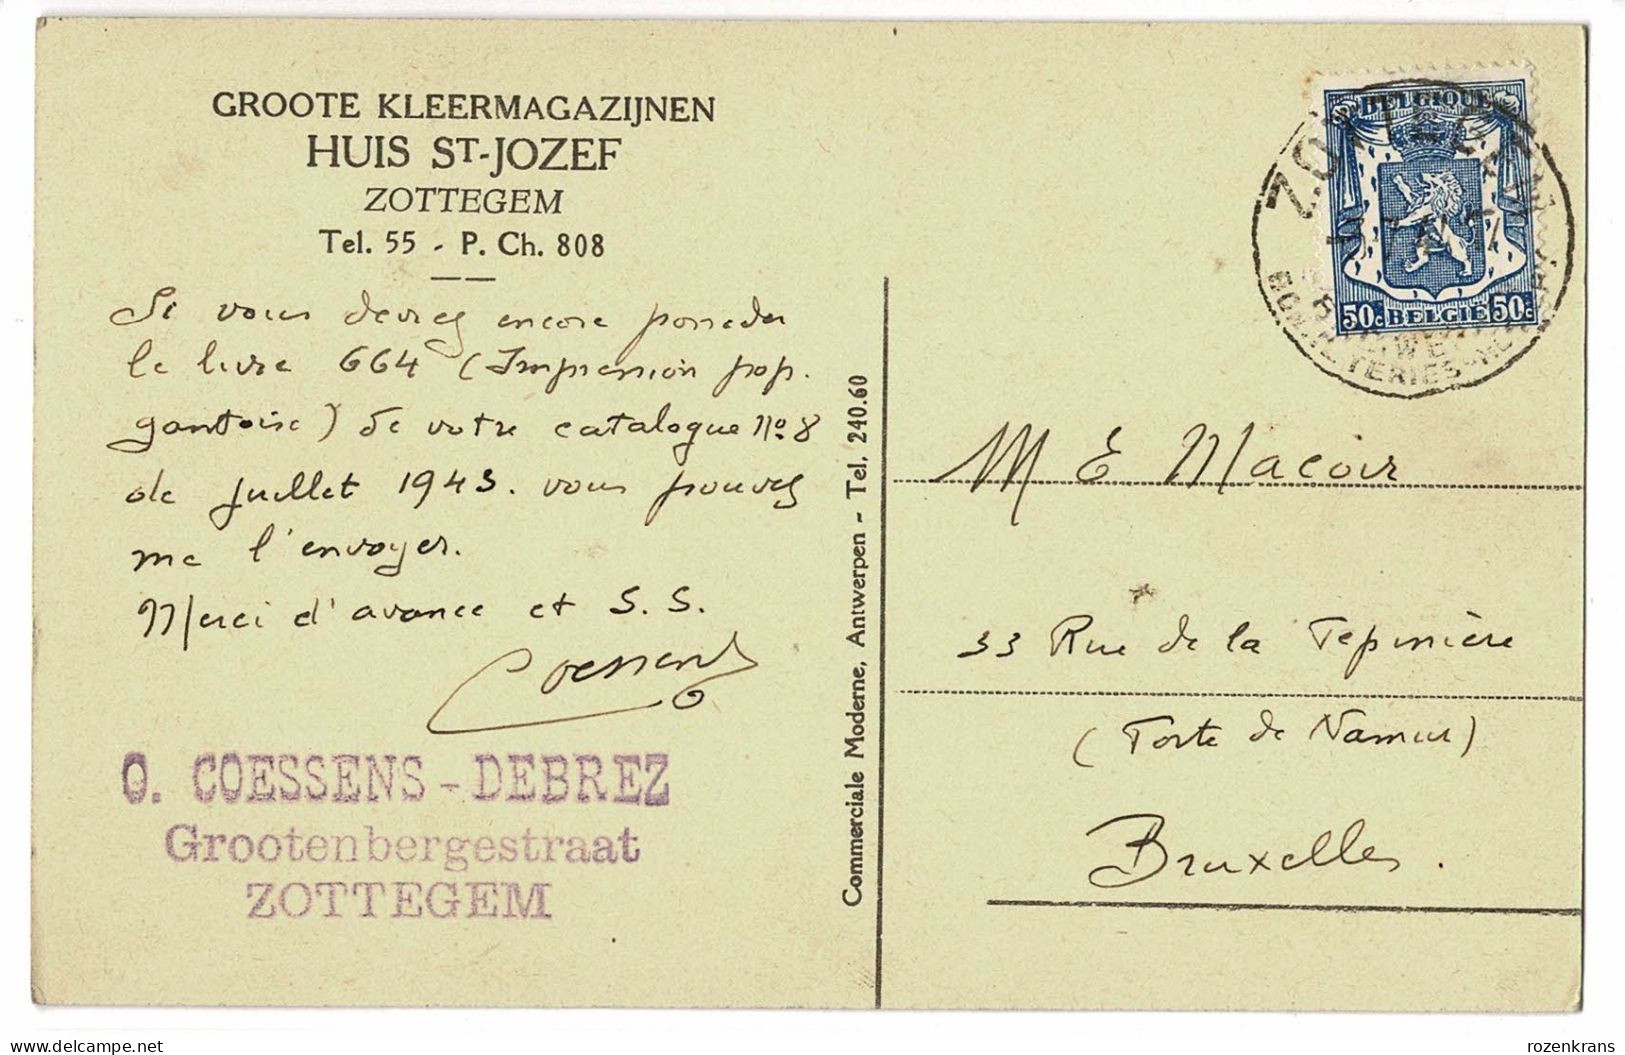 GROOTE KLEERMAGAZIJNEN
HUIS ST-JOZEF
ZOTTEGEM
Tel. 55 - P. Ch. 808
Si vous devrez encore posseder
le livre 664 (Impression pop.
gantoise) de votre catalogue No. 8
de juillet 1943. vous pouvez
me l'envoyer.
Merci d'avance et S. S.
Coessens
O. COESSENS-DEBREZ
Grootenbergestraat
ZOTTEGEM
Commerciale Moderne, Antwerpen - Tel. 240.60
BELGIQUE
50c BELGIE 50c
ZOTTEGEM
M E Macoir
33 Rue de la Pepinière
(Porte de Namur)
Bruxelles.
rozenkrans